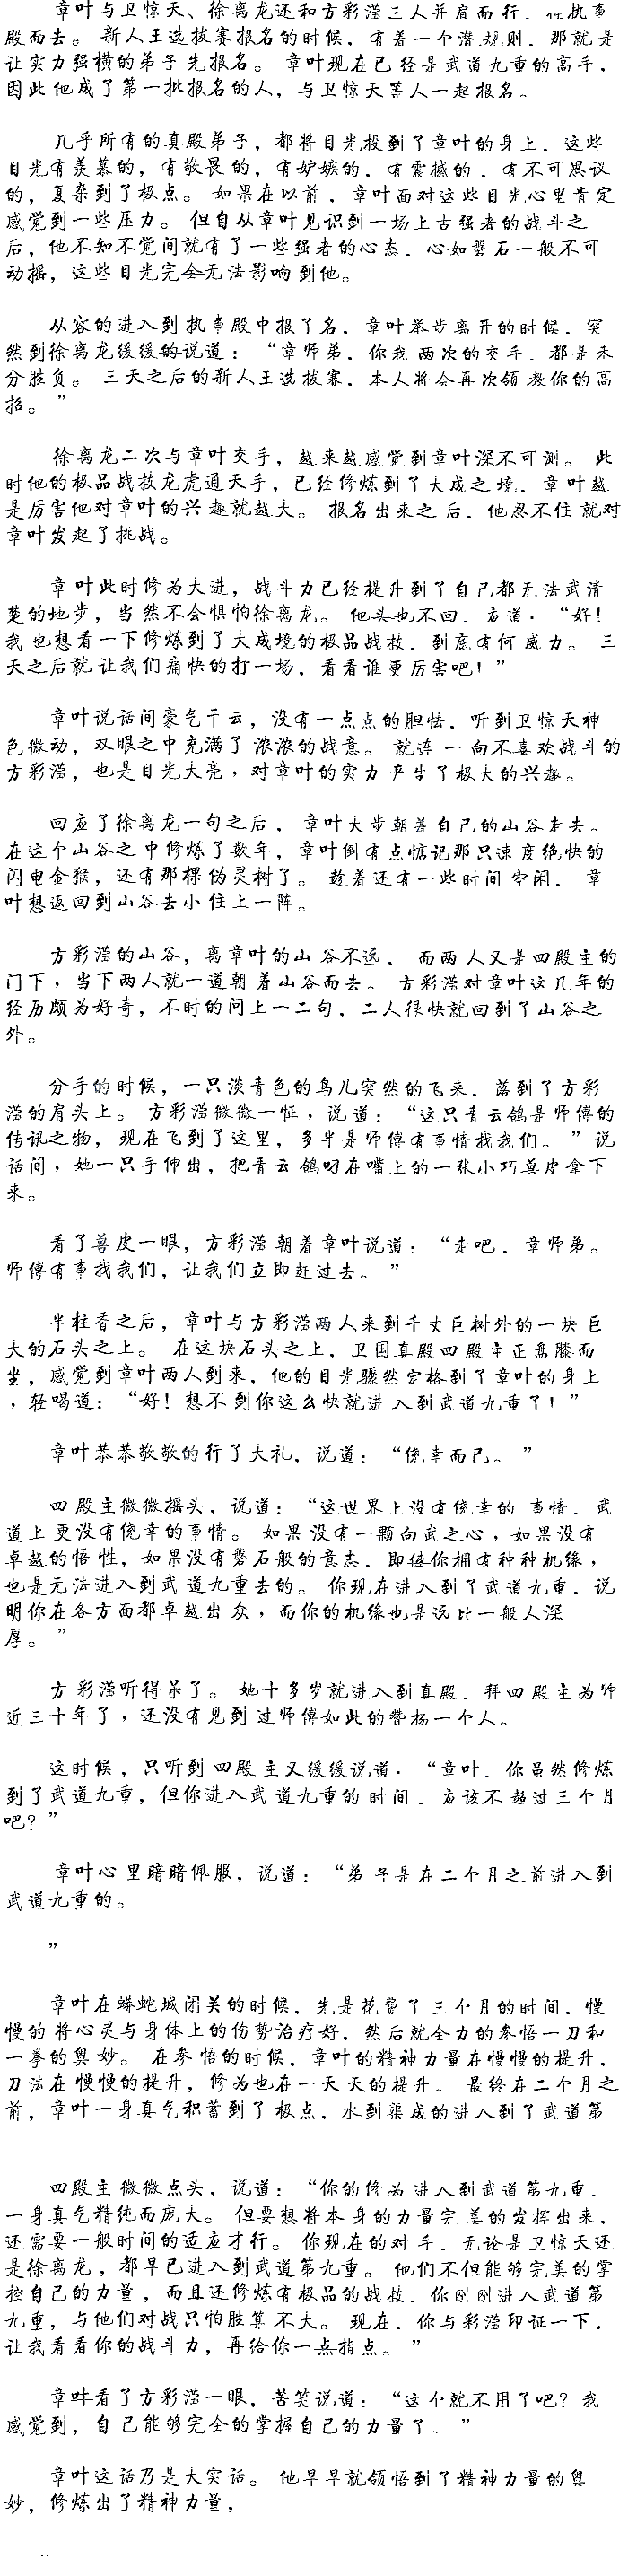 章叶与卫惊天、徐离龙还和方彩滢三人并肩而行，往执事
殿而去。 新人王选拔赛报名的时候，有着一个潜规则，那就是
让实力强横的弟子先报名。 章叶现在已经是武道九重的高手，
因此他成了第一批报名的人，与卫惊天等人一起报名。
几乎所有的真殿弟子，都将目光投到了章叶的身上，这些
目光有羡慕的，有敬畏的，有妒嫉的，有震撼的，有不可思议
的，复杂到了极点。 如果在以前，章叶面对这些目光心里肯定
感觉到一些压力。 但自从章叶见识到一场上古强者的战斗之
后，他不知不觉间就有了一些强者的心态，心如磐石一般不可
动摇，这些目光完全无法影响到他。
从容的进入到执事殿中报了名，章叶举步离开的时候，突
然到徐离龙缓缓的说道： “章师弟，你我两次的交手，都是未
分胜负。 三天之后的新人王选拔赛，本人将会再次领教你的高
招。”
徐离龙二次与章叶交手，越来越感觉到章叶深不可测。 此
时他的极品战技龙虎通天手，已经修炼到了大成之境，章叶越
是厉害他对章叶的兴趣就越大。 报名出来之后，他忍不住就对
章叶发起了挑战。
章叶此时修为大进，战斗力已经提升到了自己都无法武清
楚的地步，当然不会惧怕徐离龙。 他头也不回，应道：“好！
我也想看一下修炼到了大成境的极品战技，到底有何威力。 三
天之后就让我们痛快的打一场，看看谁更厉害吧！”
章叶说话间豪气干云，没有一点点的胆怯，听到卫惊天神
色微动，双眼之中充满了浓浓的战意。 就连一向不喜欢战斗的
方彩滢，也是目光大亮，对章叶的实力产生了极大的兴趣。
回应了徐离龙一句之后，章叶大步朝着自己的山谷走去。
在这个山谷之中修炼了数年，章叶倒有点惦记那只速度绝快的
闪电金猴，还有那棵伪灵树了。 趁着还有一些时间空闲，章
叶想返回到山谷去小住上一阵。
方彩滢的山谷，离章叶的山谷不远，而两人又是四殿主的
门下，当下两人就一道朝着山谷而去。 方彩滢对章叶这几年的
经历颇为好奇，不时的问上一二句，二人很快就回到了山谷之
外。
分手的时候，一只淡青色的鸟儿突然的飞来，落到了方彩
滢的肩头上。 方彩滢微微一怔，说道： “这只青云鸽是师傅的
传讯之物，现在飞到了这里，多半是师傅有事情找我们。 ”说
话间，她一只手伸出，把青云鸽叼在嘴上的一张小巧兽皮拿下
来。
看了兽皮一眼，方彩滢朝着章叶说道： “走吧，章师弟。
师傅有事找我们，让我们立即赶过去。 ”
半柱香之后，章叶与方彩滢两人来到千丈巨树外的一块巨
大的石头之上。 在这块石头之上，卫国真殿四殿主正盘膝而
坐，感觉到章叶两人到来，他的目光骤然定格到了章叶的身上
，轻喝道： “好！想不到你这么快就进入到武道九重了！”
章叶恭恭敬敬的行了大礼，说道： “侥幸而已。 ”
四殿主微微摇头，说道： “这世界上没有侥幸的事情，武
道上更没有侥幸的事情。 如果没有一颗向武之心，如果没有
卓越的悟性，如果没有磐石般的意志，即使你拥有种种机缘，
也是无法进入到武道九重去的。 你现在进入到了武道九重，说
明你在各方面都卓越出众，而你的机缘也是远比一般人深
厚。 ”
方彩滢听得呆了。 她十多岁就进入到真殿，拜四殿主为师
近三十年了，还没有见到过师傅如此的赞扬一个人。
这时候，只听到四殿主又缓缓说道： “章叶，你虽然修炼
到了武道九重，但你进入武道九重的时间，应该不超过三个月
吧？”
章叶心里暗暗佩服，说道： “弟子是在二个月之前进入到
武道九重的。
”
章叶在蟒蛇城闭关的时候，先是花费了三个月的时间，慢
慢的将心灵与身体上的伤势治疗好，然后就全力的参悟一刀和
一拳的奥妙。 在参悟的时候，章叶的精神力量在慢慢的提升，
刀法在慢慢的提升，修为也在一天天的提升。 最终在二个月之
前，章叶一身真气积蓄到了极点，水到渠成的进入到了武道第
四殿主微微点头，说道： “你的修为进入到武道第九重，
一身真气精纯而庞大。 但要想将本身的力量完美的发挥出来，
还需要一般时间的适应才行。 你现在的对手，无论是卫惊天还
是徐离龙，都早已进入到武道第九重。 他们不但能够完美的掌
控自己的力量，而且还修炼有极品的战技，你刚刚进入武道第
九重，与他们对战只怕胜算不大。 现在，你与彩滢印证一下，
让我看看你的战斗力，再给你一点指点。 ”
章叶看了方彩滢一眼，苦笑说道： “这个就不用了吧？我
感觉到，自己能够完全的掌握自己的力量了。 ”
章叶这话乃是大实话。 他早早就领悟到了精神力量的奥
妙，修炼出了精神力量，
..